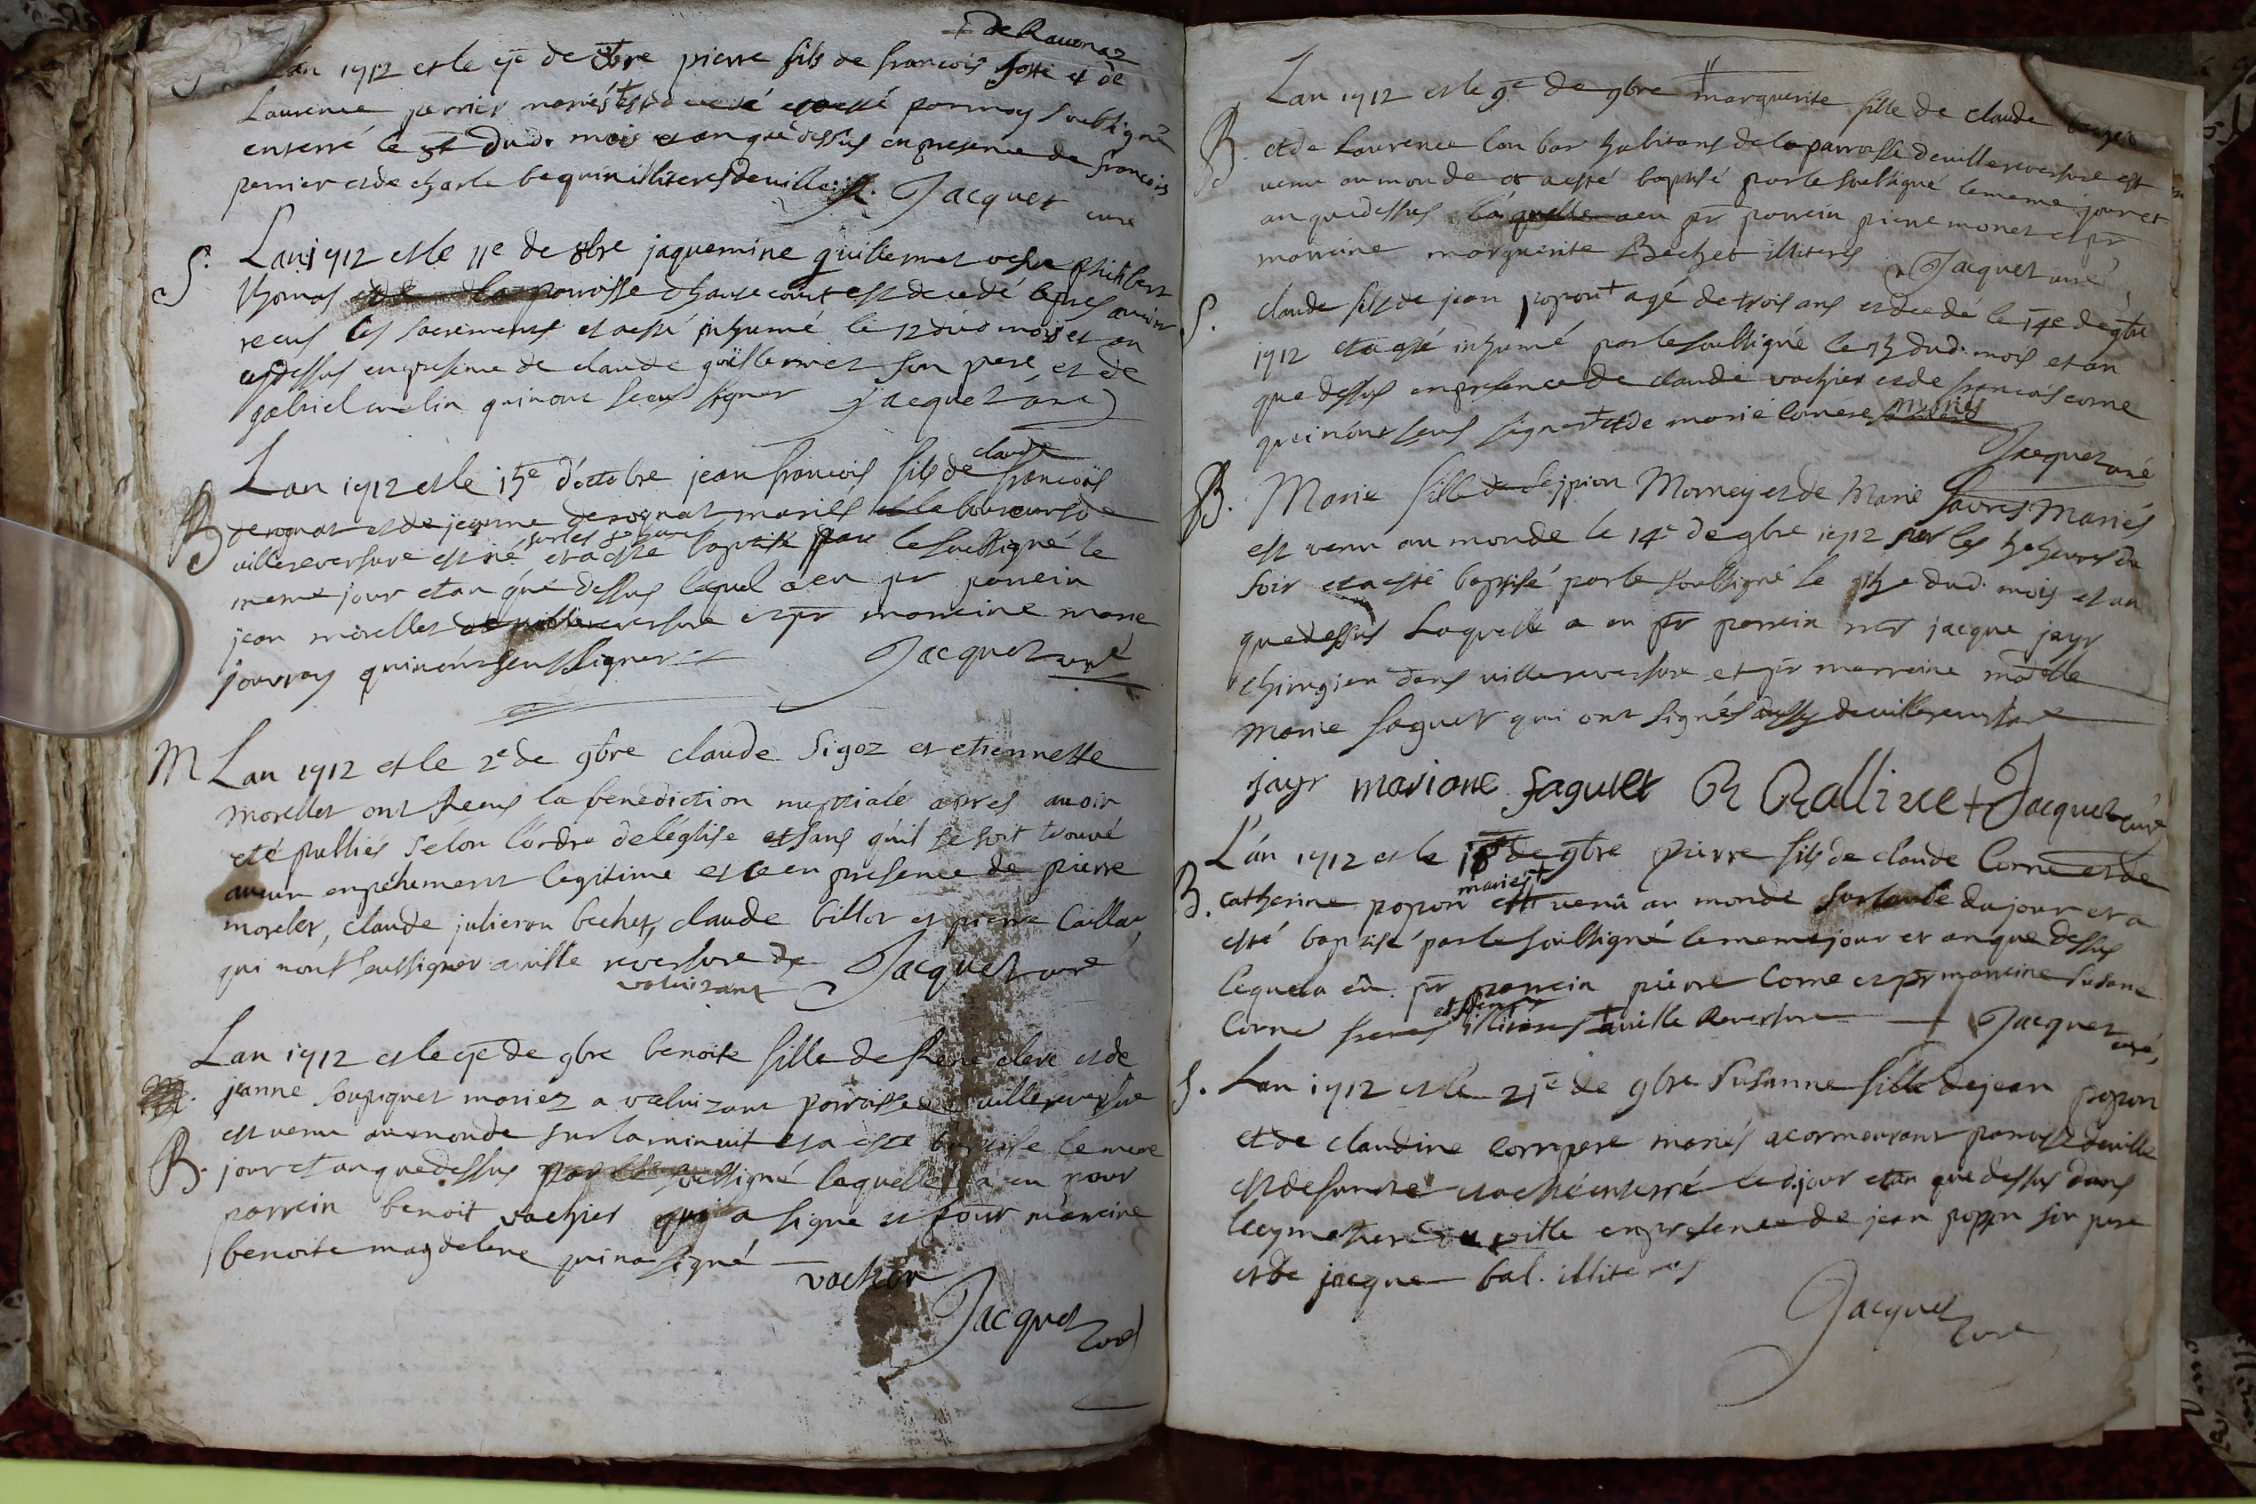 de Rauonaz
Lan 1712 et le 9e de 8bre pierre fils de francois et de
Laurence perrier mariés est decedé et a esté par moy soubsigné
enterré le dud. mois et an que dessus en presence de francois
perrier et de charle bequin illiteres de ville Jacquet curé
S. Lan 1712 et le 11e de 8bre jaquemine guillermet vefve philibert
thomas de la parroisse d'hautecourt est decedé apres avoir
receus les sacrements et a esté inhumé le 12 dud mois et an
que dessus en presence de claude guillermet son pere et de
gabriel melin qui n'ont sceus signer Jacquet curé
claude
Lan 1712 et le 15e d'octobre jean francois fils de francois
B derognat et de jeanne derognat mariés
villereversure est né et a esté baptisé par le soubsigné le
meme jour et an que dessus lequel a eu pr parrein
jean morellet de villereversure et pr marreine marie
jouvray qui n'ont sceus signer Jacquet curé
M Lan 1712 et le 2e de 9bre claude Sigoz et etiennette
morellet ont receus la benediction nuptiale apres avoir
eté publiés selon l'ordre de l'eglise et sans qu'il se soit trouvé
aucun enpéhement legitime et ce en presence de pierre
morelet, claude julieron bechet, claude billot et pierre Caillat,
qui n'ont sceus signer a ville reversure de Jacquet curé
valuizant
Lan 1712 et le 9e de 9bre benoite fille de Rene clerc et de
jeanne soupiquet mariez a valuizant parroisse de villereversure
est venu au monde sur la minuit et a esté baptisé le meme
B. jour et an que dessus par le soubsigné laquelle a eu pour
parrein benoit vachier qui a signe et pour marreine
benoite magdelene qui n'a signé
vachier
Jacquet curé
Lan 1712 et le 9e de 9bre marguerite fille de claude
B. et de Laurence Lombar habitans de la parroisse de villereversure est
venu au monde et a esté baptisé par le soubsigné le meme jour et
an que dessus laquelle a eu pr parrein pierre monet et pr
marreine marguerite Bechet illiteres Jacquet curé
S. claude fils de jean popon + agé de trois ans est decedé le 14e de 9bre
1712 et a esté inhumé par le soubsigné le 15 dud. mois et an
que dessus en presence de claude vachier et de francois corne
qui n'ont sceus signer + et de marie comere mariés
Jacquet curé
B. Marie fille de Scipion Morney et de Marie favres Mariés
est venu au monde le 14e de 9bre 1712 sur les 5 heures du
soir et a esté baptisé par le soubsigné le 15e dud. mois et an
que dessus Laquelle a eu pr parrein mr jacque jayr
chirugien dans villereversure et pr marreine madelle
marie faguet qui ont signés aussy de villereversure
jayr mariane faguet Jacquet curé
L'an 1712 et le 18e de 9bre pierre fils de claude Corne et de
mariés +
B. catherine popon est venu au monde sur l'aube du jour et a
esté baptisé par le soubsigné le meme jour et an que dessus
lequel a eu pr parrein pierre Corne et pr marreine Susane
Corne freres et soeur illiteres a ville Reversure Jacquet curé,
S. Lan 1712 et le 21e de 9bre Susanne fille de jean popon
et de claudine compere mariés a cormorant parroisse de ville
est defunte et a esté enterré led. jour et an que dessus dans
le cymetiere de ville en presence de jean popon son pere
et de jacque bal. illiteres
Jacquet curé